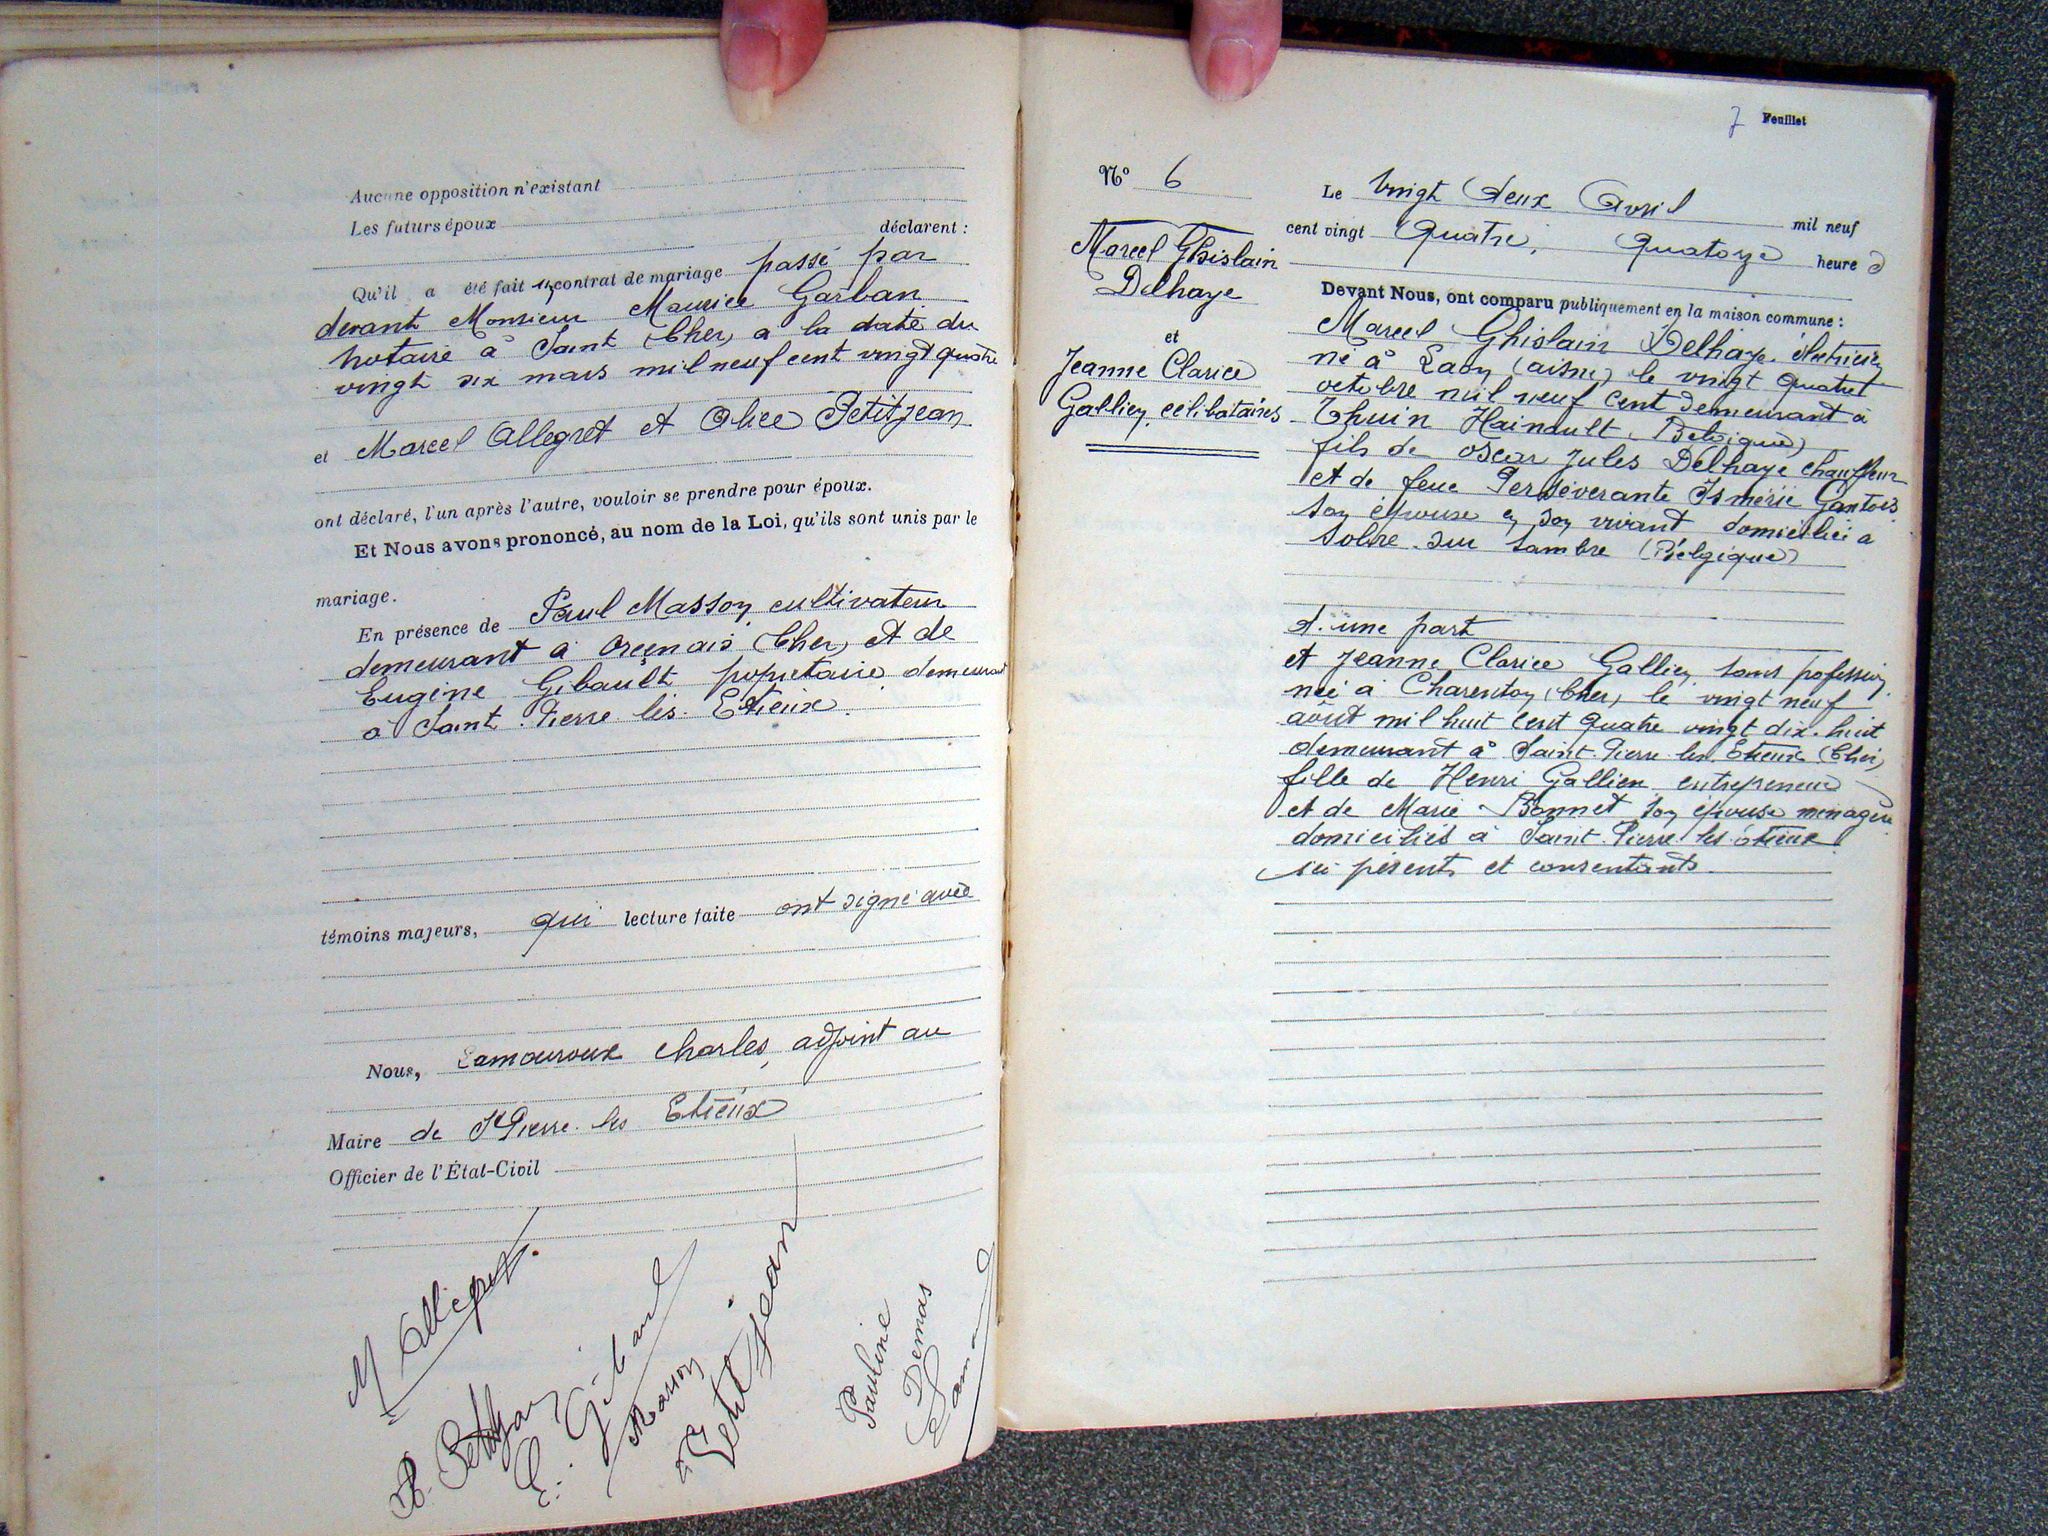 Aucune opposition n'existant
Les futurs époux déclarent :
Qu'il a été fait un contrat de mariage passé par
devant Monsieur Maurice Garban
notaire à Saint (Cher) a la date du
vingt six mars mil neuf cent vingt quatre
et Marcel Allegret et Alice Petitjean
ont déclaré, l'un après l'autre, vouloir se prendre pour époux.
Et Nous avons prononcé, au nom de la Loi, qu'ils sont unis par le
mariage.
En présence de Paul Masson cultivateur
demeurant à Orcenais (Cher) et de
Eugène Gibault propriétaire demeurant
à Saint Pierre les Etieux.
témoins majeurs, qui lecture faite ont signé avec
Nous, Lamouroux Charles, adjoint au
Maire de St Pierre les Etieux
Officier de l'État-Civil
M Allegret
A. Petitjean
E. Gibault
Masson
Petitjean
Pauline
Demas
7 Feuillet
N° 6
Marcel Ghislain
Delhaye
et
Jeanne Clarice
Gallien, célibataires
Le vingt deux Avril mil neuf
cent vingt quatre, quatorze heures
Devant Nous, ont comparu publiquement en la maison commune :
Marcel Ghislain Delhaye, électricien
né à Laon (aisne) le vingt quatre
octobre mil neuf cent demeurant à
Thuin Hainault (Belgique)
fils de oscar Jules Delhaye chauffeur
et de feue Perséverante Ismérie Gantois
son épouse en son vivant domicilié à
Solre sur Sambre (Belgique)
d'une part
et Jeanne Clarice Gallien, sans profession
née à Charenton (Cher) le vingt neuf
août mil huit cent quatre vingt dix huit
demeurant à Saint Pierre les Etieux (Cher)
fille de Henri Gallien entrepreneur
et de Marie Bonnet son épouse ménagère
domiciliés à Saint Pierre les étieux
ici présents et consentants